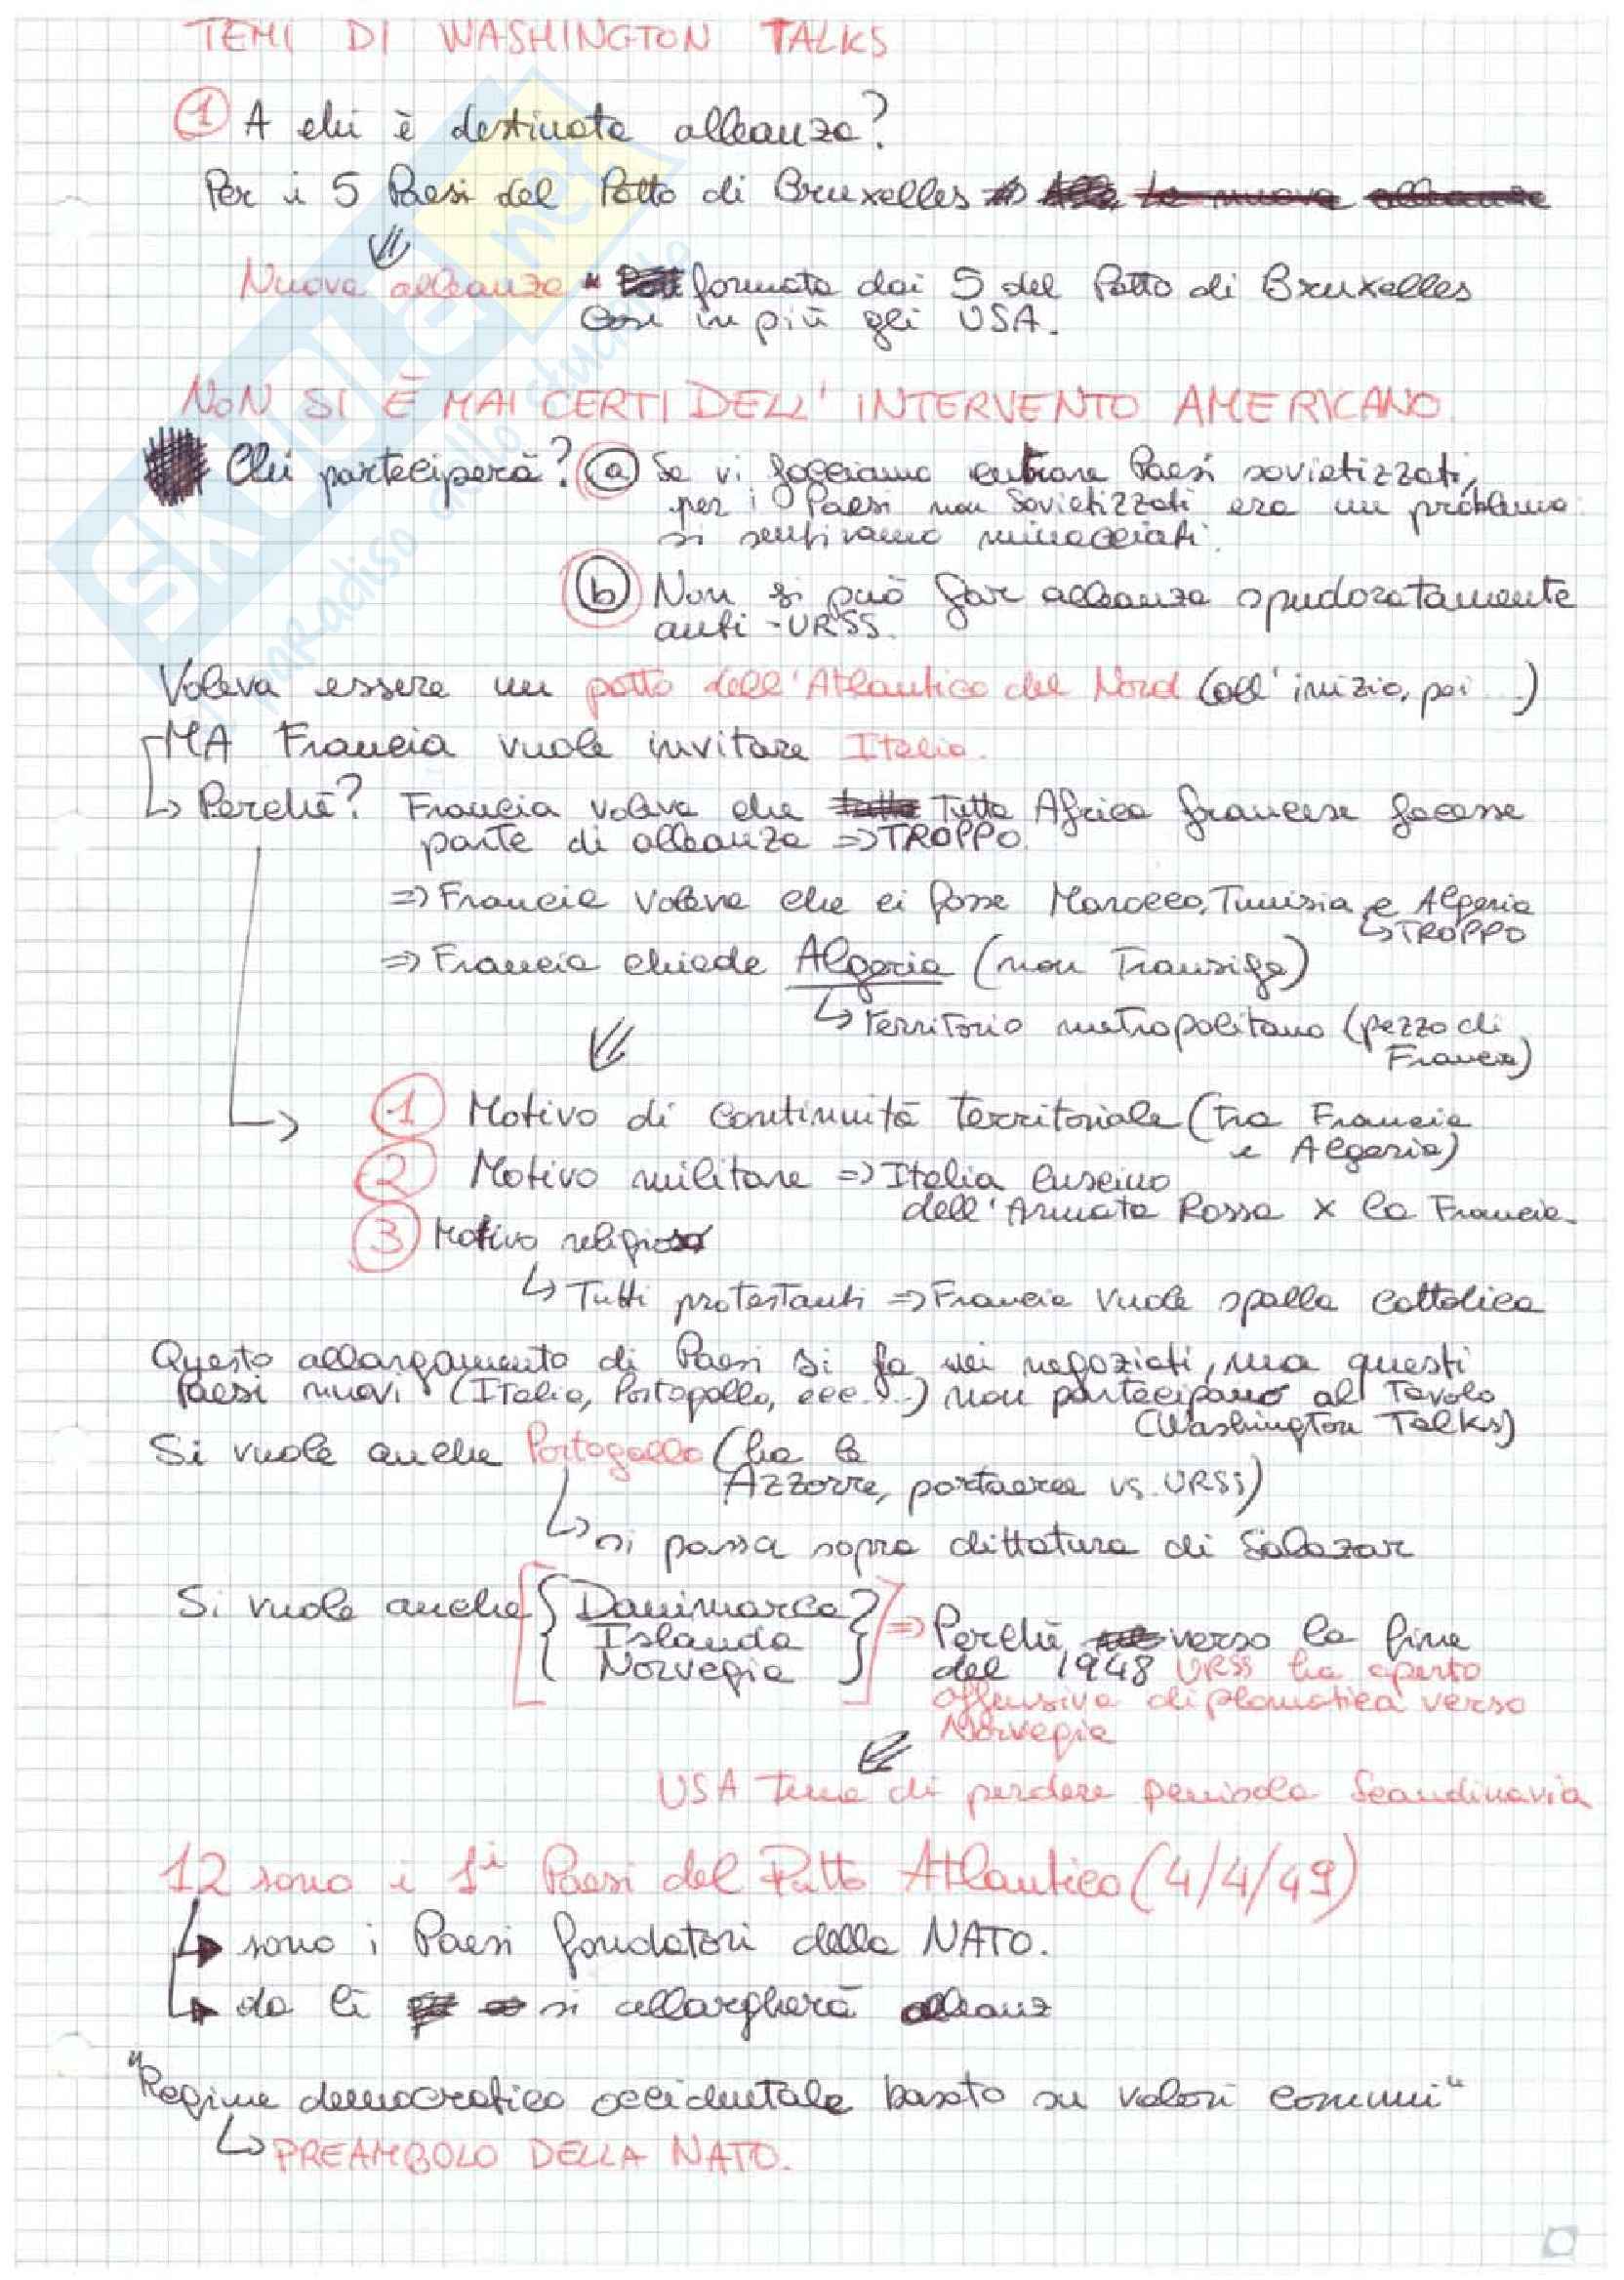 TEMI DI WASHINGTON TALKS
① A chi è destinata alleanza?
Per i 5 Paesi del Patto di Bruxelles
Nuova alleanza formata dai 5 del Patto di Bruxelles
in più gli USA.
NON SI È MAI CERTI DELL'INTERVENTO AMERICANO
Chi parteciperà? ⓐ Se vi facciamo entrare Paesi sovietizzati,
per i Paesi non sovietizzati era un problema:
si sentivano minacciati.
ⓑ Non si può far alleanza spudoratamente
anti-URSS.
Voleva essere un patto dell'Atlantico del Nord (all'inizio, poi ...)
MA Francia vuole invitare Italia.
↳ Perchè? Francia voleva che Tutta Africa francese facesse
parte di alleanza => TROPPO.
=> Francia voleva che ci fosse Marocco, Tunisia e Algeria
↳ TROPPO
=> Francia chiede Algeria (non Transige)
↳ territorio metropolitano (pezzo di
Francia)
① Motivo di continuità territoriale (tra Francia
e Algeria)
② Motivo militare => Italia cuscino
dell'Armata Rossa x la Francia.
③ Motivo religioso
↳ Tutti protestanti => Francia vuole spalla cattolica
Questo allargamento di Paesi si fa nei negoziati, ma questi
Paesi nuovi (Italia, Portogallo, ecc...) non partecipano al Tavolo
(Washington Talks)
Si vuole anche Portogallo (ha le
Azzorre, portaerea vs. URSS)
↳ si passa sopra dittatura di Salazar
Si vuole anche { Danimarca
Islanda
Norvegia } => Perchè verso la fine
del 1948 URSS ha aperto
offensiva diplomatica verso
Norvegia
USA teme di perdere penisola Scandinavia
12 sono i 1i Paesi del Patto Atlantico (4/4/49)
↳ sono i Paesi fondatori della NATO.
↳ da lì si allargherà alleanz
"Regime democratico occidentale basato su valori comuni"
↳ PREAMBOLO DELLA NATO.
SKUOLA.net
il paradiso dello studente